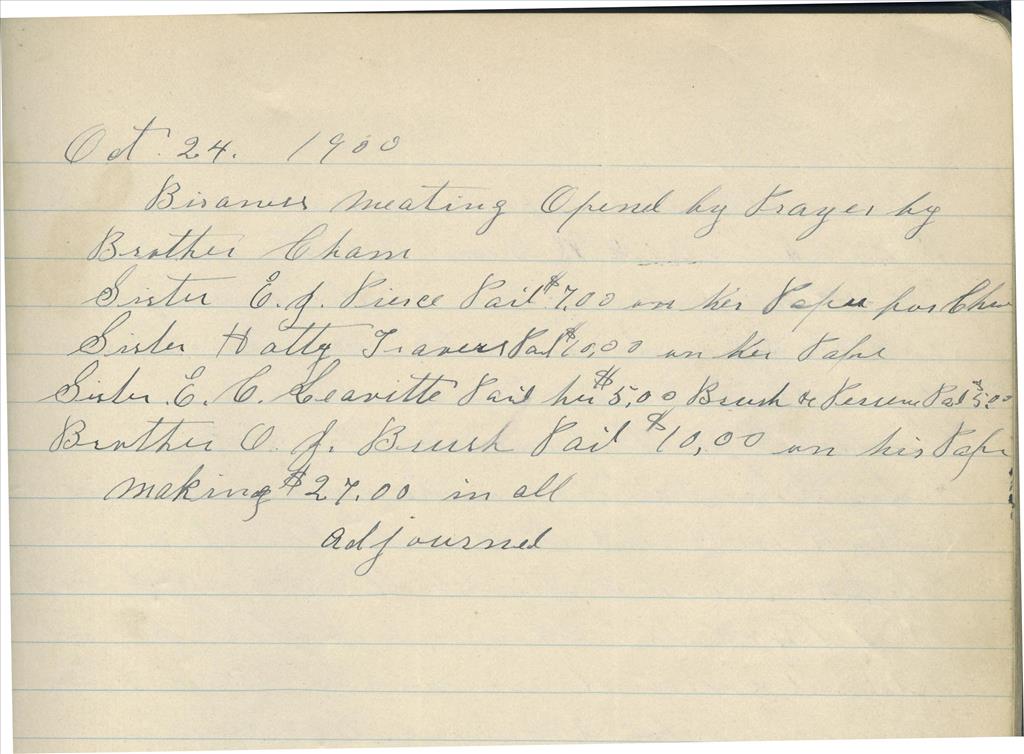 Oct. 24. 1900
Bisaness meating Opend by Prayer by
Brother Cham
Sister E. J. Pierce Paid $7.00 on her Paper for
Sister Hatty Travers Paid $10,00 on her Pape
Sister E. C. Leavitte Paid her $5,00 Brush & Pd $5.00
Brother O. J. Brush Paid $10,00 on his Pape
making $27.00 in all
adjourned